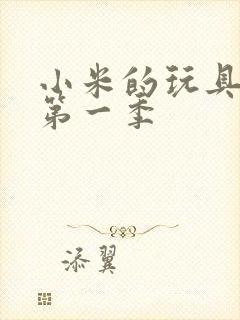 小米的玩具
第一季
添翼